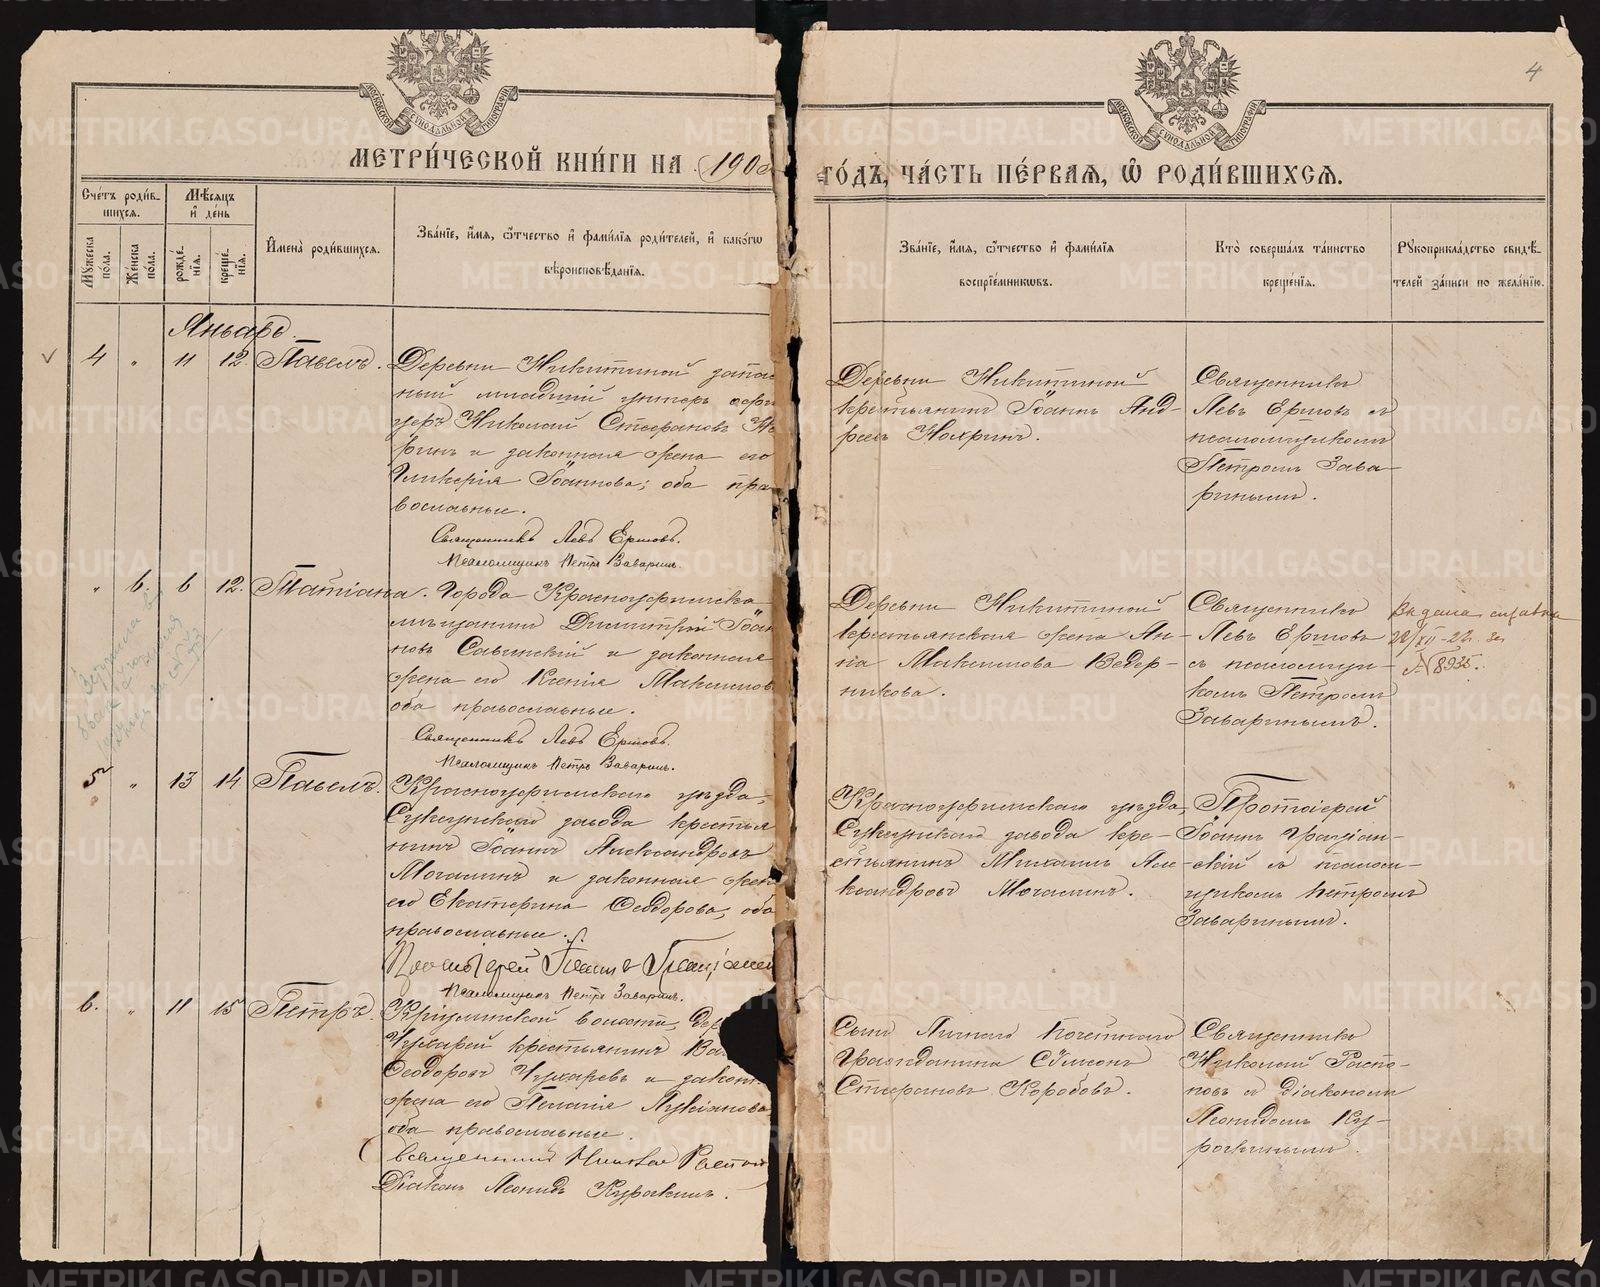 4
МОСКОВСКОЙ СѴНОДАЛЬНОЙ ТИПОГРАФІИ
МОСКОВСКОЙ СѴНОДАЛЬНОЙ ТИПОГРАФІИ
МЕТРИ́ЧЕСКОЙ КНИ́ГИ НА 190
ГО́ДЪ, ЧА́СТЬ ПЕ́РВАѦ, Ѽ РОДИ́ВШИХСѦ.
Сче́тъ роди́в-
шихсѧ.
Мѣ́сѧцъ
и҆ де́нь
Мꙋ́жеска по́ла.
Же́нска по́ла.
рожде́-
нїѧ.
креще́-
нїѧ.
И҆мена̀ роди́вшихсѧ.
Зва́нїе, и҆́мѧ, ѻ҆́тчество и҆ фами́лїѧ роди́телей, и҆ како́гѡ
вѣроисповѣ́данїѧ.
Зва́нїе, и҆́мѧ, ѻ҆́тчество и҆ фами́лїѧ
воспрїе́мникѡвъ.
Кто̀ соверша́лъ та́инство
креще́нїѧ.
Рꙋкоприкла́дство свидѣ́-
телей за́писи по жела́нїю.
Январь.
4 " 11 12. Павелъ.
Деревни Никитиной запас
ный младшій унтеръ офи
церъ Николай Стефановъ
ринъ и законная жена его
Гликерія Іоаннова; оба пра
вославные.
Священникъ Левъ Ершовъ.
Псаломщикъ Петръ Заваринъ.
Деревни Никитиной
крестьянинъ Іоаннъ Анд-
реевъ Нохринъ.
Священникъ
Левъ Ершовъ съ
псаломщикомъ
Петромъ Зава-
ринымъ.
" 6. 6 12. Татіана.
Города Красноуфимска
мѣщанинъ Димитрій Іоан
новъ Савинскій и законная
жена его Ксенія Максимова
оба православные.
Священникъ Левъ Ершовъ.
Псаломщикъ Петръ Заваринъ.
Деревни Никитиной
крестьянская жена Ан-
на Максимова Ведер-
никова.
Священникъ
Левъ Ершовъ
съ псаломщи-
комъ Петромъ
Заваринымъ.
Выдана справка
22/XII-22г. за
№ 8935.
5 " 13 14 Павелъ.
Красноуфимскаго уѣзда,
Суксунскаго завода крестья
нинъ Іоаннъ Александровъ
Мочалинъ и законная жена
его Екатерина Ѳеодорова, оба
православные.
Протоіерей Іоаннъ Граціанскій
Псаломщикъ Петръ Заваринъ.
Красноуфимскаго уѣзда,
Суксунскаго завода кре-
стьянинъ Михаилъ Але
ксандровъ Мочалинъ.
Протоіерей
Іоаннъ Граціан-
скій съ псалом-
щикомъ Петромъ
Заваринымъ.
6. " 11 15 Петръ.
Криулинской волости, дер
Чухарей крестьянинъ Ва
Ѳеодоровъ Чухаревъ и законн
жена его Пелагія Лукіянова
оба православные.
Священникъ Николай Распо
Діаконъ Леонидъ Курочкинъ.
Сынъ Личнаго Почетнаго
Гражданина Сѵмеонъ
Стефановъ Коробовъ.
Священникъ
Николай Распо-
повъ и Діакономъ
Леонидомъ Ку-
рочкинымъ.
METRIKI.GASO-URAL.RU